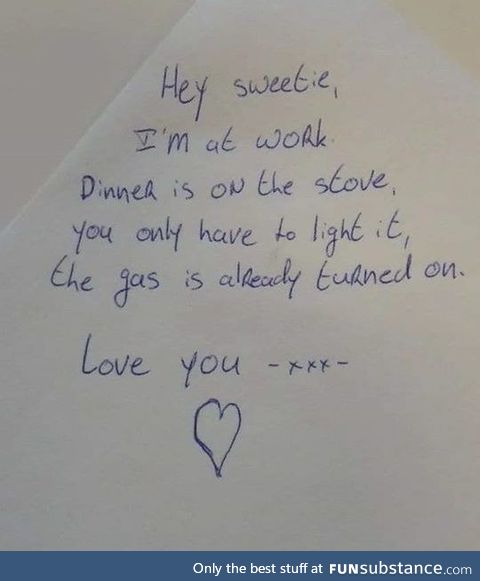 Hey sweetie,
I'm at work.
Dinner is on the stove,
you only have to light it,
the gas is already turned on.
Love you -xxx-
Only the best stuff at FUNsubstance.com